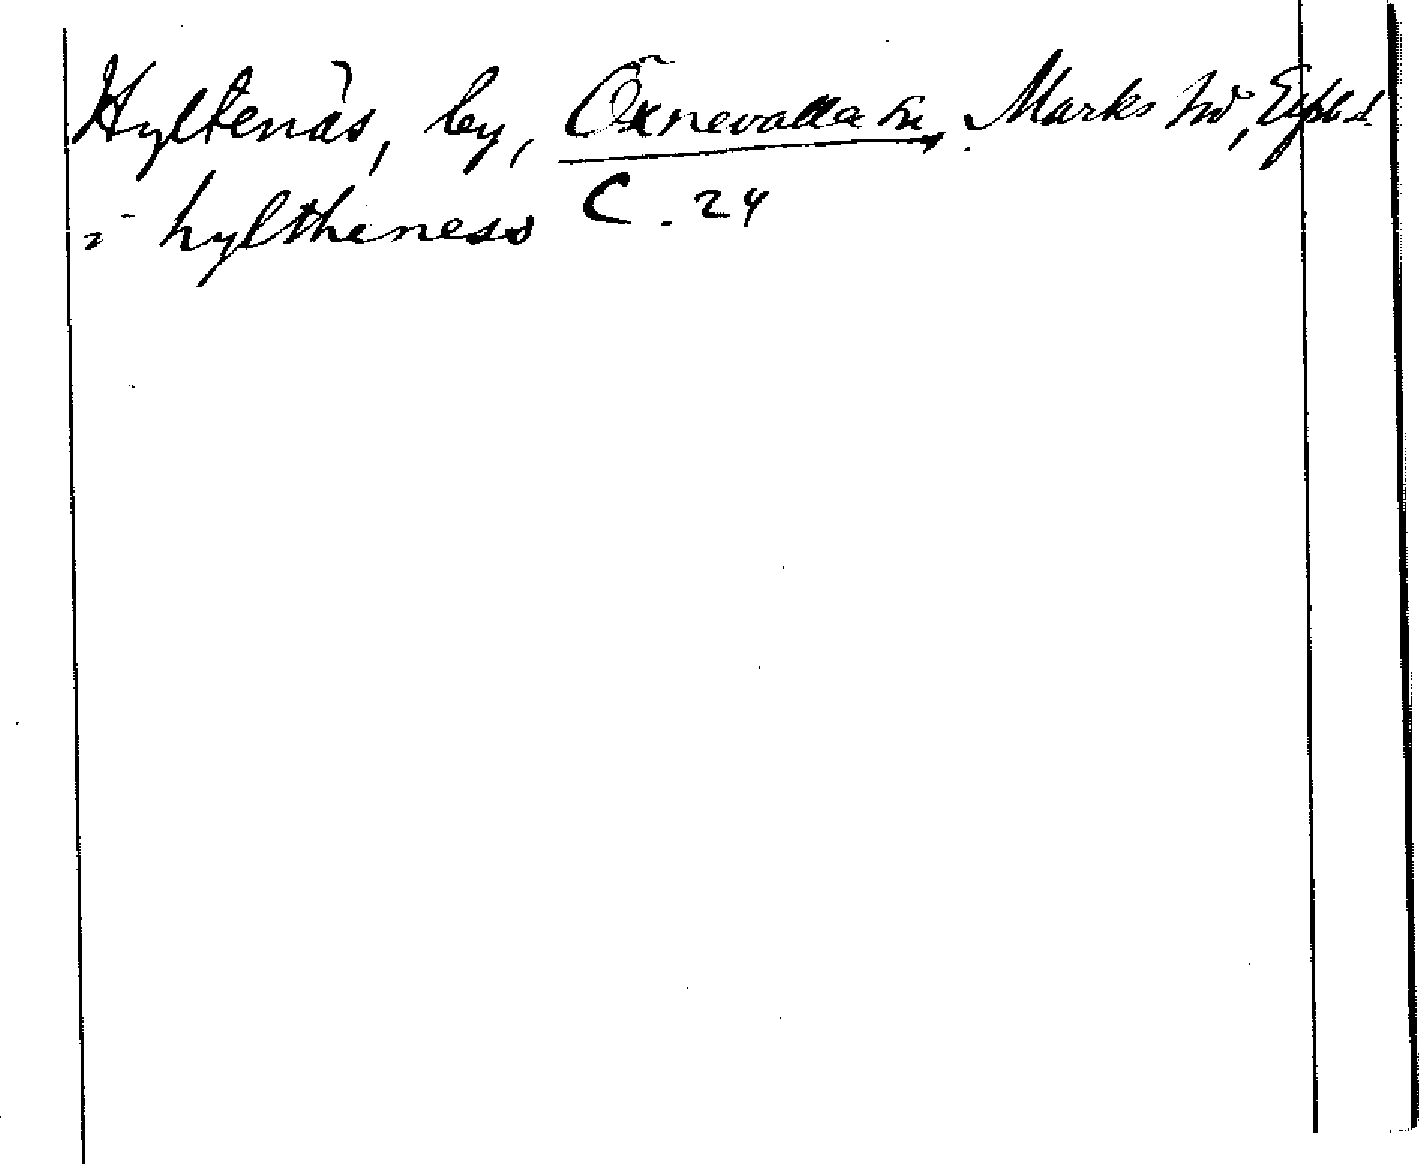 Hyltenäs, by, Öxnevalla sn, Marks hd, Elfsb.l.
i hyltheness C. 24